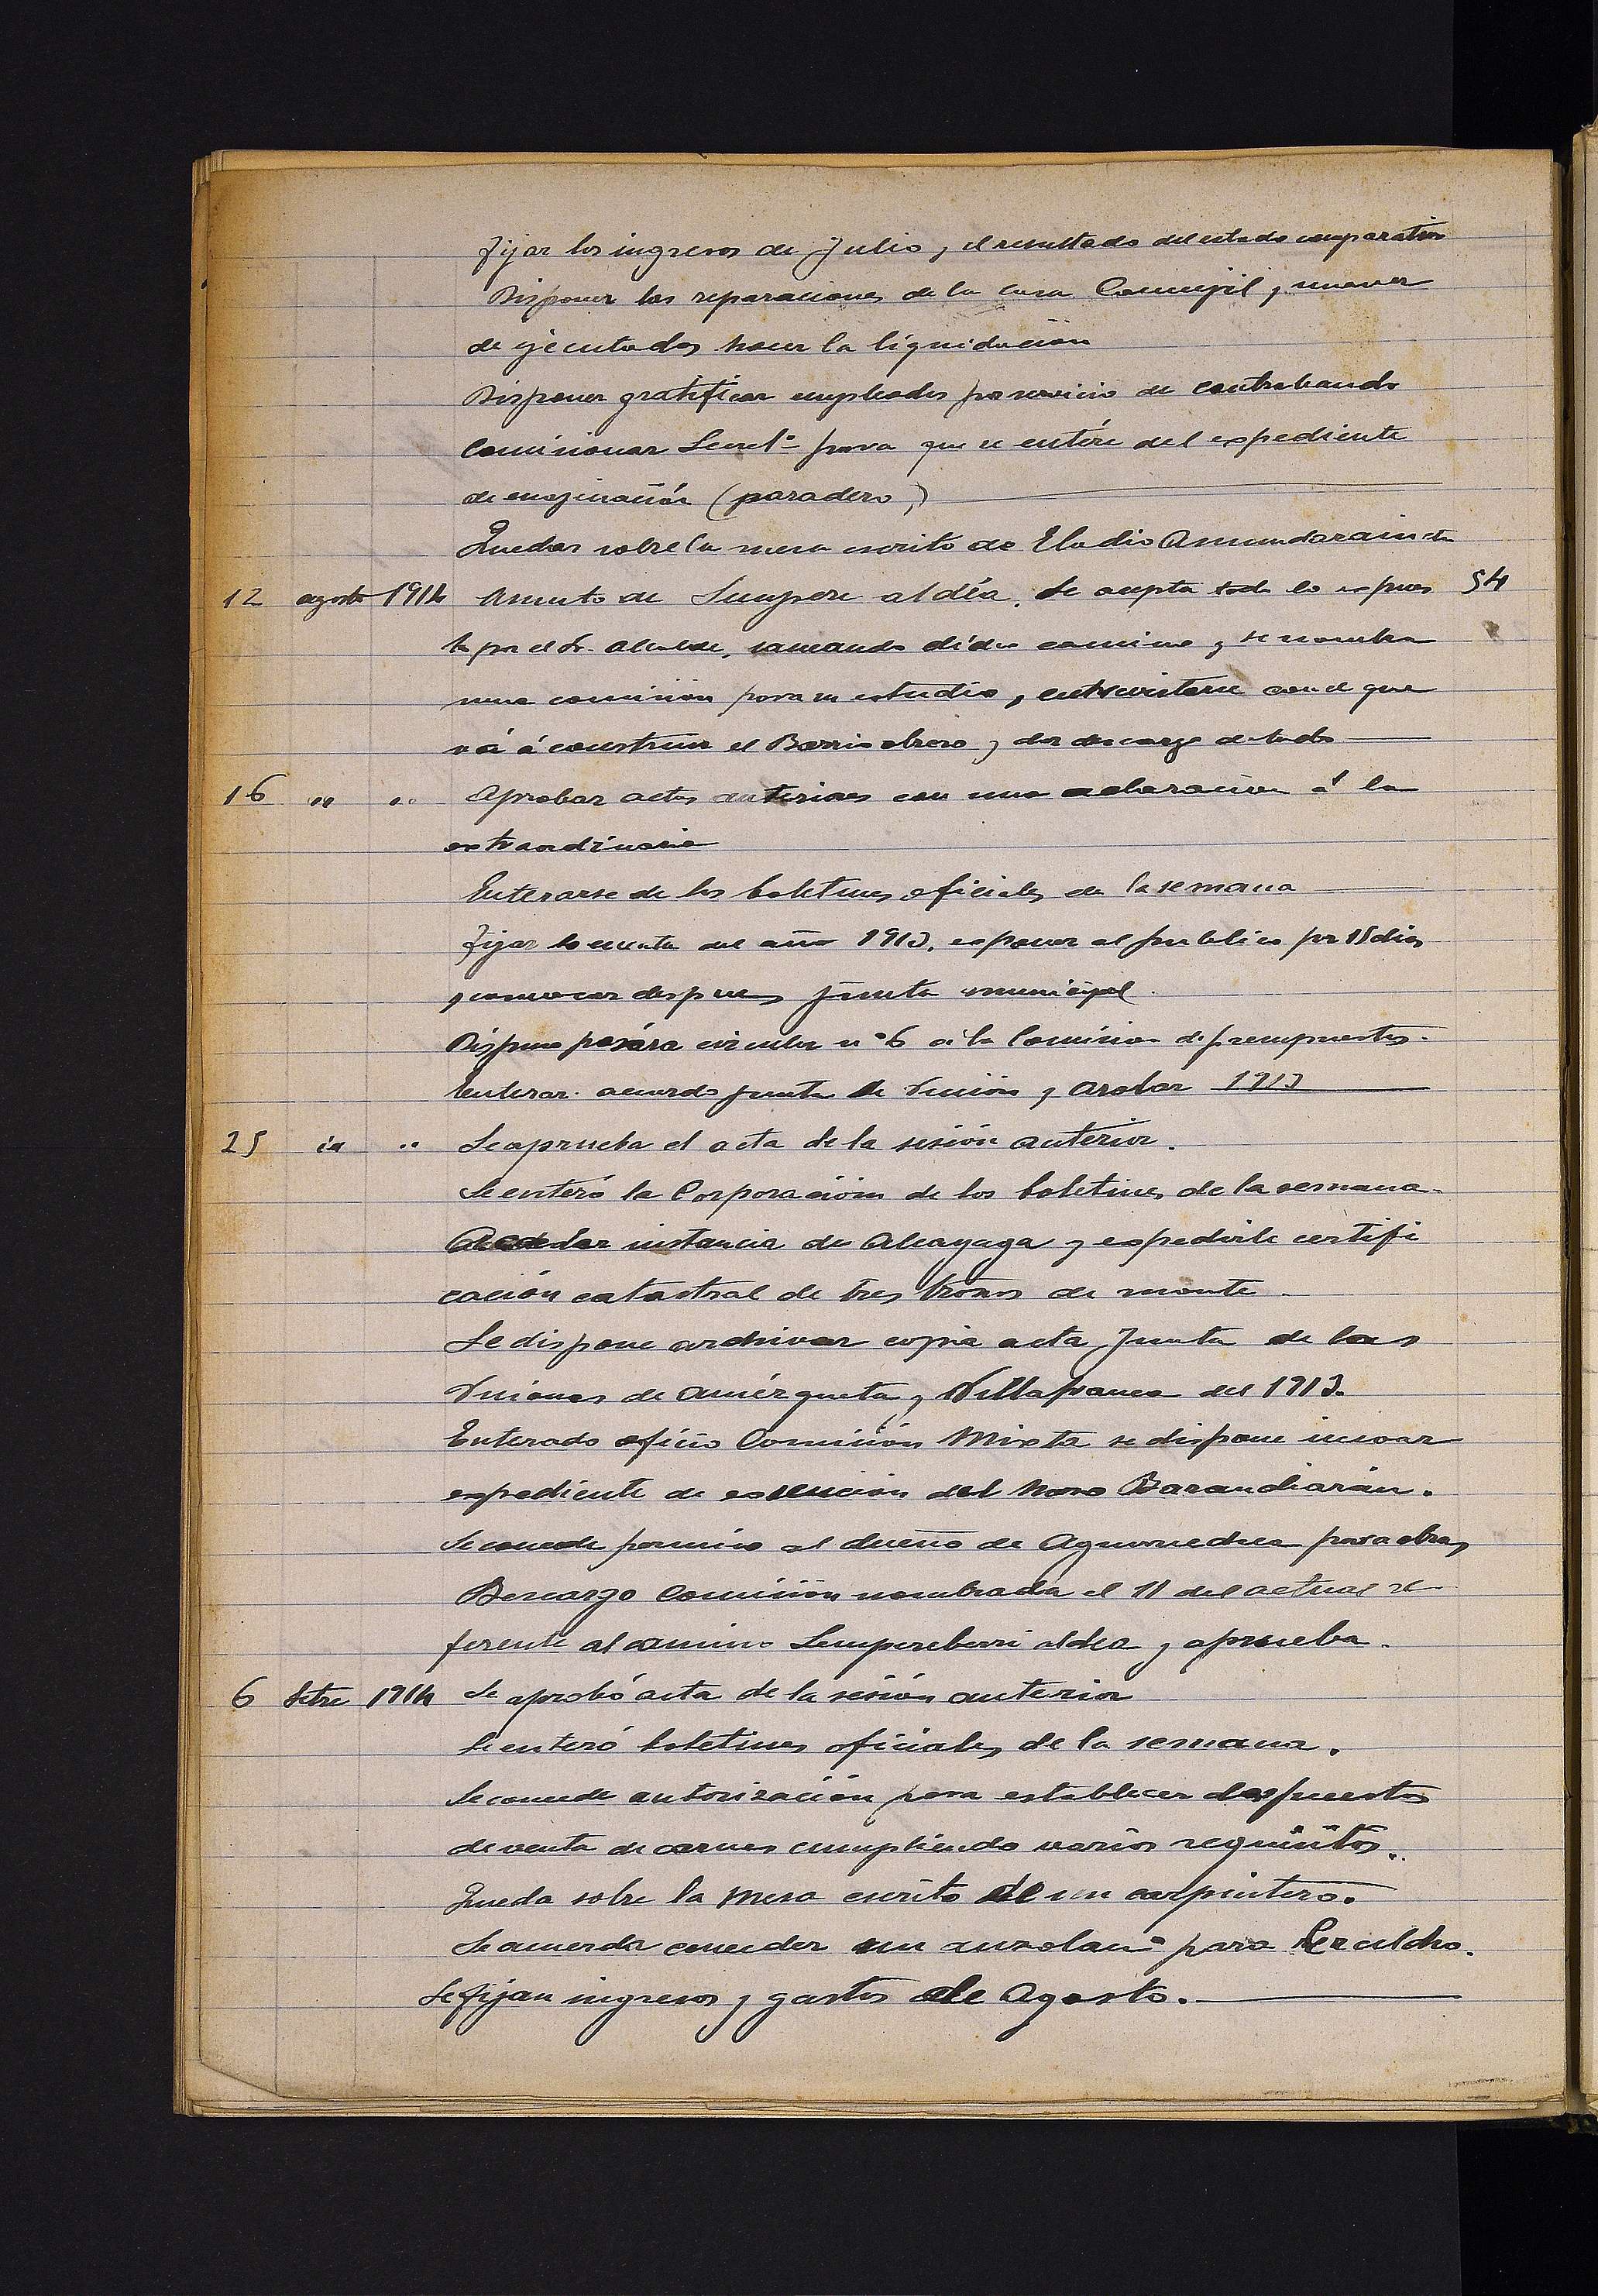 Fijar los ingresos de Julio y el resultado del estado comparativo
Disponer las reparaciones de la casa Concejil y
de ejecutados hacer la liquidación
Disponer gratificar empleados por servicio de contrabando
Comisionar Secret.º para que se entére del expediente
de (paradero)
Quedar sobre la mesa escrito de Eladio Amundarain
12 agosto 1914 Asunto de Sempere aldéa. Se acepta todo lo expues 54
to por el Sr. Alcalde, dicho camino y se nombra
una comisión para su estudio, entrevistarse con el que
vá á construir el Barrio obrero y dar descargo de todo
16 " " Aprobar actas anteriores con una aclaración á la
extraordinaria
Enterarse de los boletines oficiales de la semana
Fijar la cuenta del año 1913, exponer al publico por 15 dias
y convocar despues Junta municipal.
Dispone pasára circular nº 6 á la Comision de presupuestos.
Enterar acuerdo Junta de Unión y 1913
25 id " Se aprueba el acta de la sesión anterior.
Se enteró la Corporación de los boletines de la semana.
Acceder instancia de Alcayaga y expedirle certifi
cación catastral de tres trozos de monte.
Se dispone archivar copia acta Junta de las
Uniones de Amézqueta y Villafranca del 1913.
Enterado oficio Comisión Mixta se dispone incoar
expediente de exención del mozo Barandiarán.
Se concede permiso al dueño de para obras
Descargo Comisión nombrada el 11 del actual re
ferente al camino Sempereberri aldea y aprueba.
6 Setre 1914 Se aprobó acta de la sesión anterior
Se enteró boletines oficiales de la semana.
Se concede autorización para establecer dos puestos
de venta de carnes cumpliendo varios requisitos.
Queda sobre la mesa escrito de un carpintero.
Se acuerda conceder un para
Se fijan ingresos y gastos de Agosto.